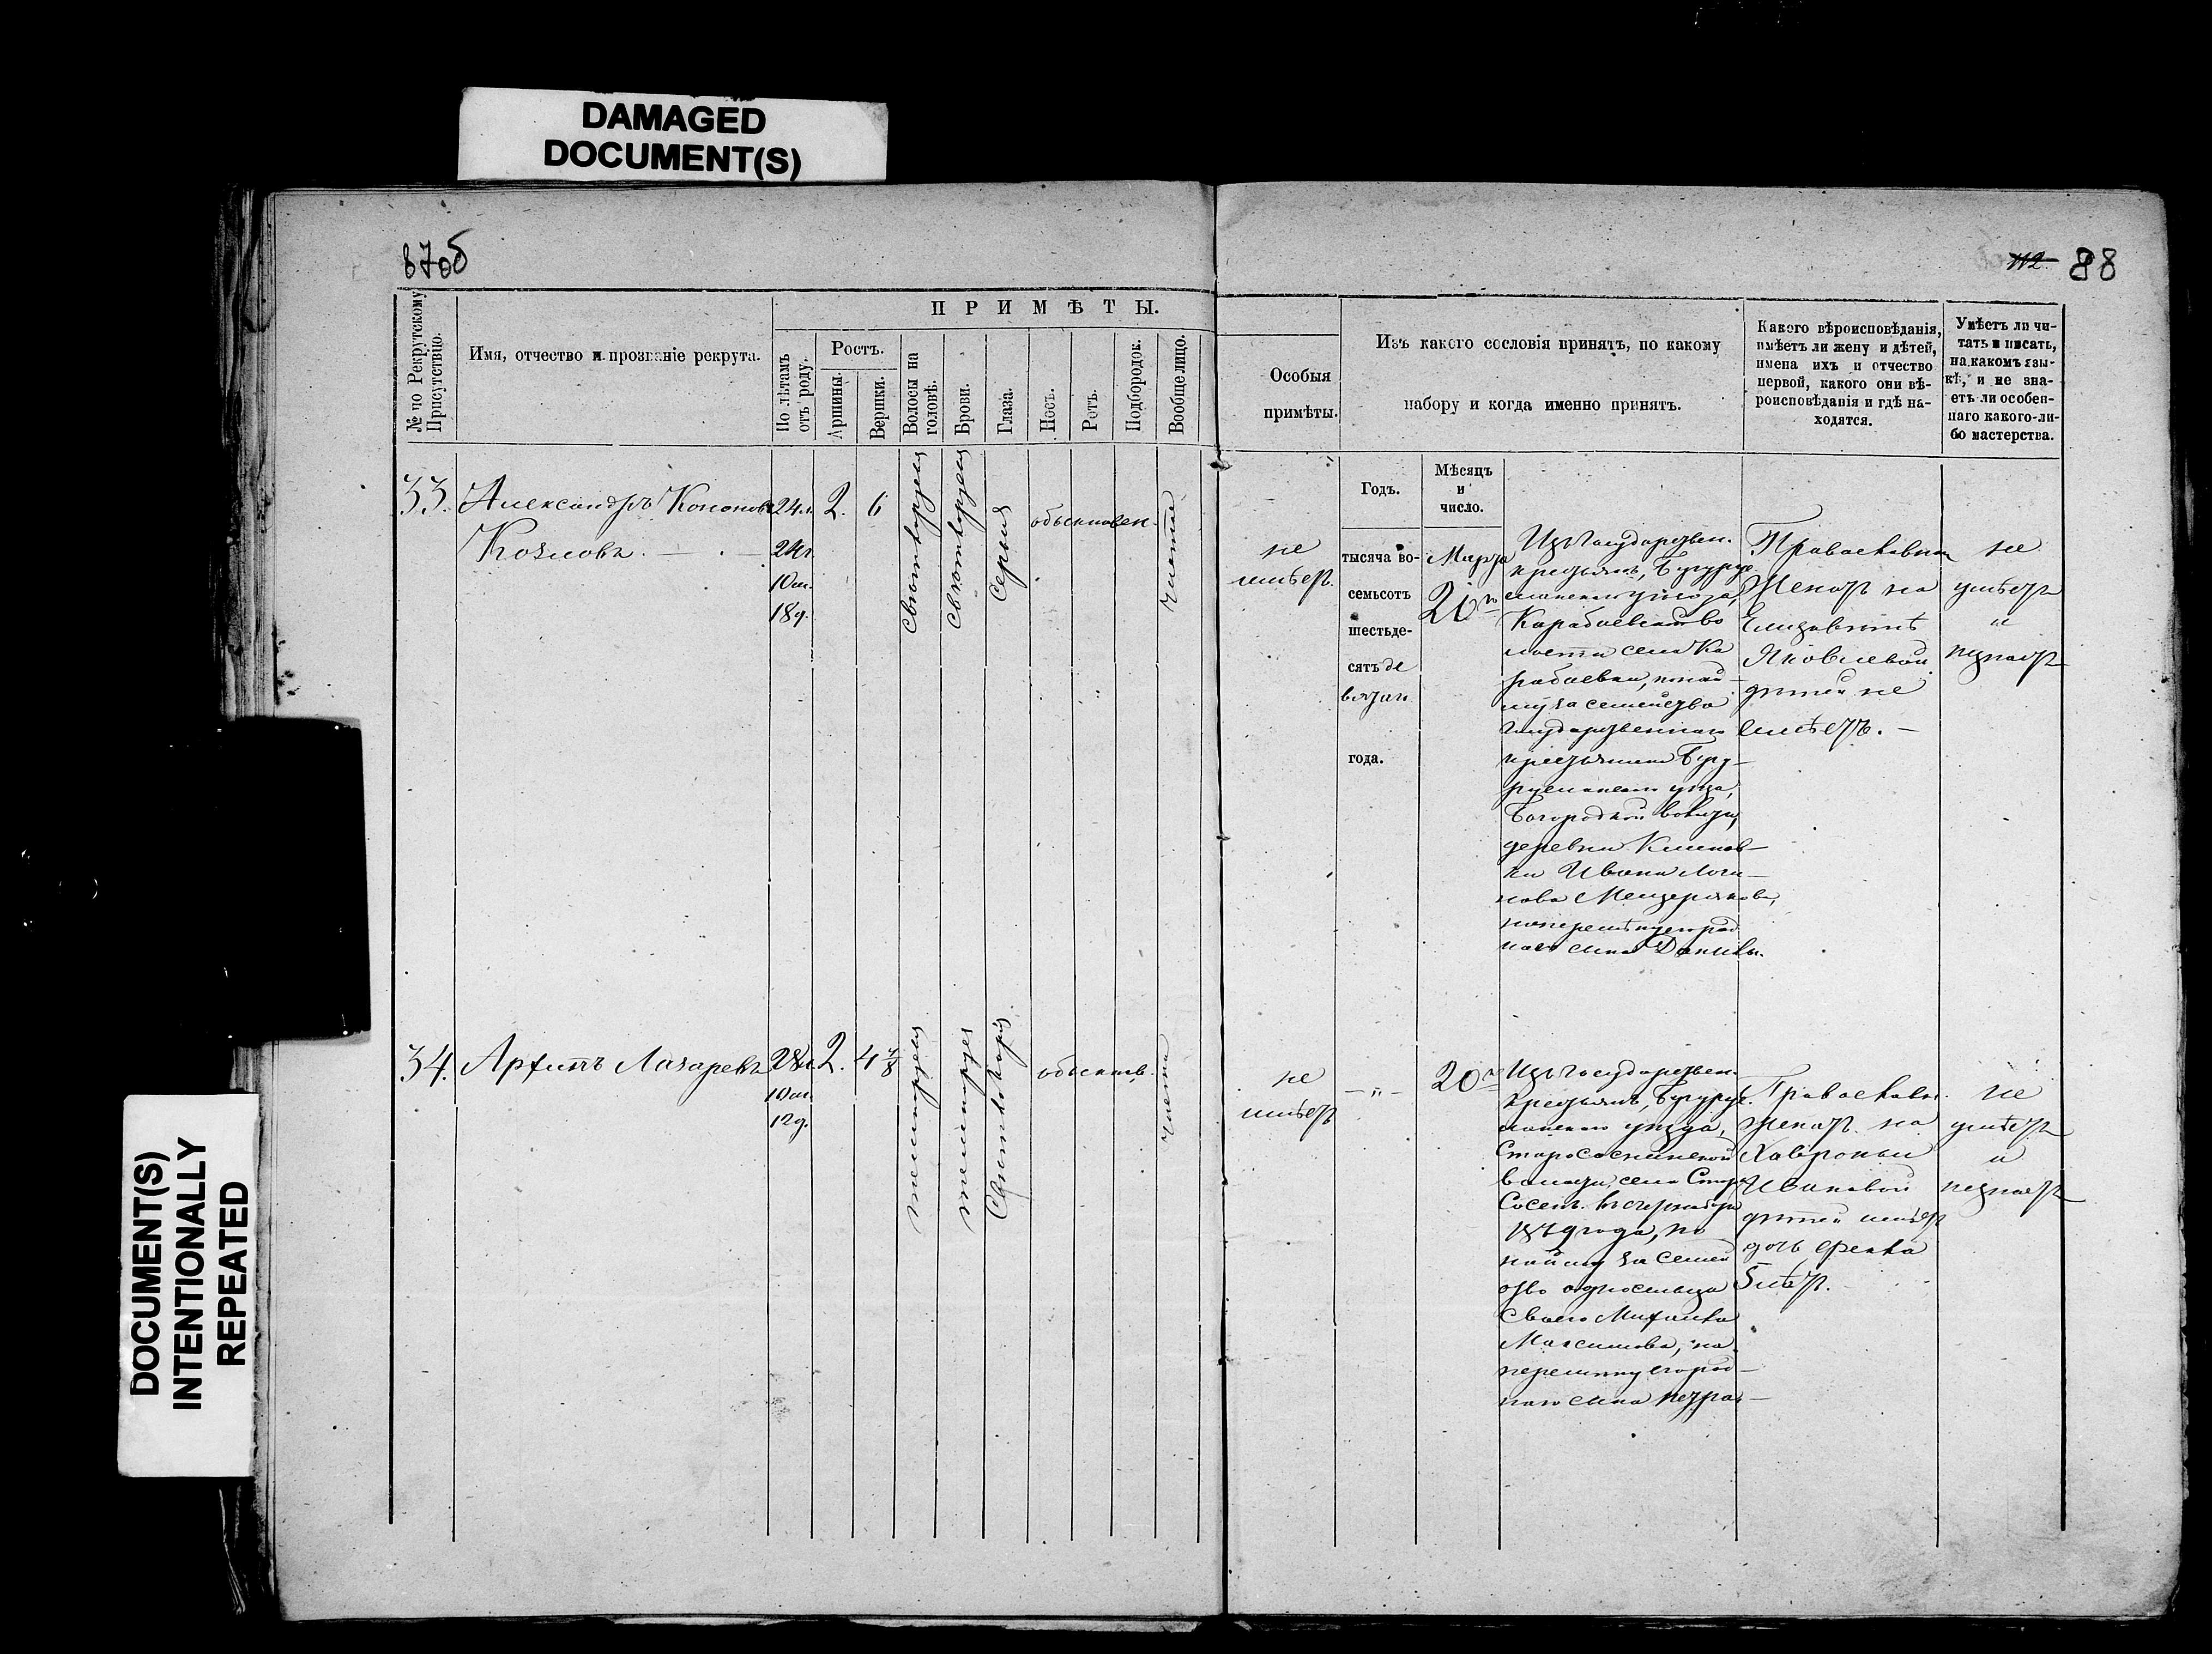 DAMAGED
DOCUMENT(S)
87об
112. 88
№ по Рекрутскому Присутствію.
Имя, отчество и прозваніе рекрута.
ПРИМѢТЫ.
По лѣтамъ отъ роду.
Ростъ.
Аршины.
Вершки.
Волосы на головѣ.
Брови.
Глаза.
Носъ.
Ротъ.
Подбородок.
Вообще лицо.
Особыя
примѣты.
Изъ какого сословія принятъ, по какому
набору и когда именно принятъ.
Какого вѣроисповѣданія,
имѣетъ ли жену и дѣтей,
имена ихъ и отчество
первой, какого они вѣ-
роисповѣданія и гдѣ на-
ходятся.
Умѣетъ ли чи-
тать и писать,
на какомъ язы-
кѣ, и не зна-
етъ ли особен-
наго какого-ли-
бо мастерства.
Годъ.
Мѣсяцъ
и
число.
33.
Александръ Кононовъ
Козловъ.
24 л.
24 г.
10 м.
18 д.
2.
6
свѣтлорусыя
свѣтлорусыя
серыя
обыкновен.
чистое
не
имѣетъ.
тысяча во-
семьсотъ
шестьде-
сятъ де
вятаго
года.
Марта
20го
Изъ Государствен.
крестьянъ, Бугурус
ланскаго уѣзда,
Карабаевской во
лости села Ка
рабаевки, по най
му за семейство
Государственнаго
крестьянина Бугу-
русланскаго уѣзда,
Богородской волости,
деревни Климов-
ки Ивана Логи-
нова Мещерякова,
на перемѣну его род
наго сына Данилы.
Православный
Женатъ на
Елизаветѣ
Яковлевой,
дѣтей не
имѣетъ.
не
умѣетъ
и
не знаетъ
34.
Архипъ Лазаревъ
28 л.
10 м.
12 д.
2.
4 7/8
темнорусыя
темнорусыя
Светлокарія
обыкнов.
чистое
не
имѣетъ
— " —
20го
Изъ Государствен.
Крестьянъ, Бугурус.
ланскаго уѣзда,
Старососнинской
волости, села Стар.
Сосенъ.
года, по
найму за семей
ство односельца
своего Михаила
Максимова, на
перемѣну его род-
наго сына Петра.
Православн.
женатъ на
Хавроньи
Ивановой
дѣтей имѣетъ
дочь Фекла
5 лѣтъ.
не
умѣетъ
и
не знаетъ
DOCUMENT(S)
INTENTIONALLY
REPEATED